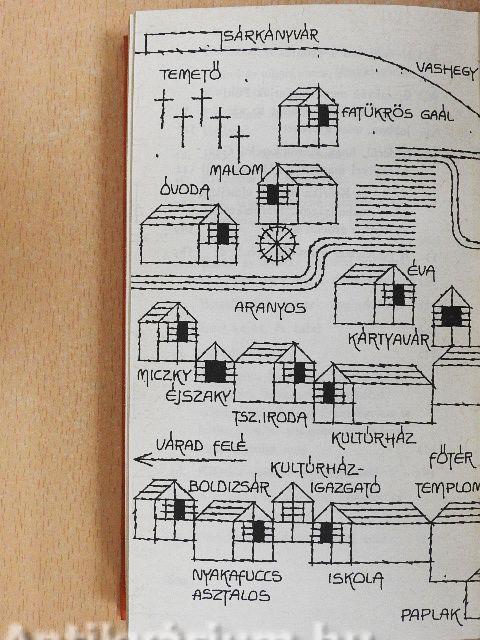 SÁRKÁNYVÁR
VASHEGY
TEMETŐ
FATÜKRÖS GAÁL
MALOM
ÓVODA
ÉVA
ARANYOS
KÁRTYAVÁR
MICZKY
ÉJSZAKY
TSZ. IRODA
KULTÚRHÁZ
VÁRAD FELÉ
FŐTÉR
KULTÚRHÁZ-
IGAZGATÓ
BOLDIZSÁR
TEMPLOM
NYAKAFUCCS
ASZTALOS
ISKOLA
PAPLAK
Antikvárium.hu